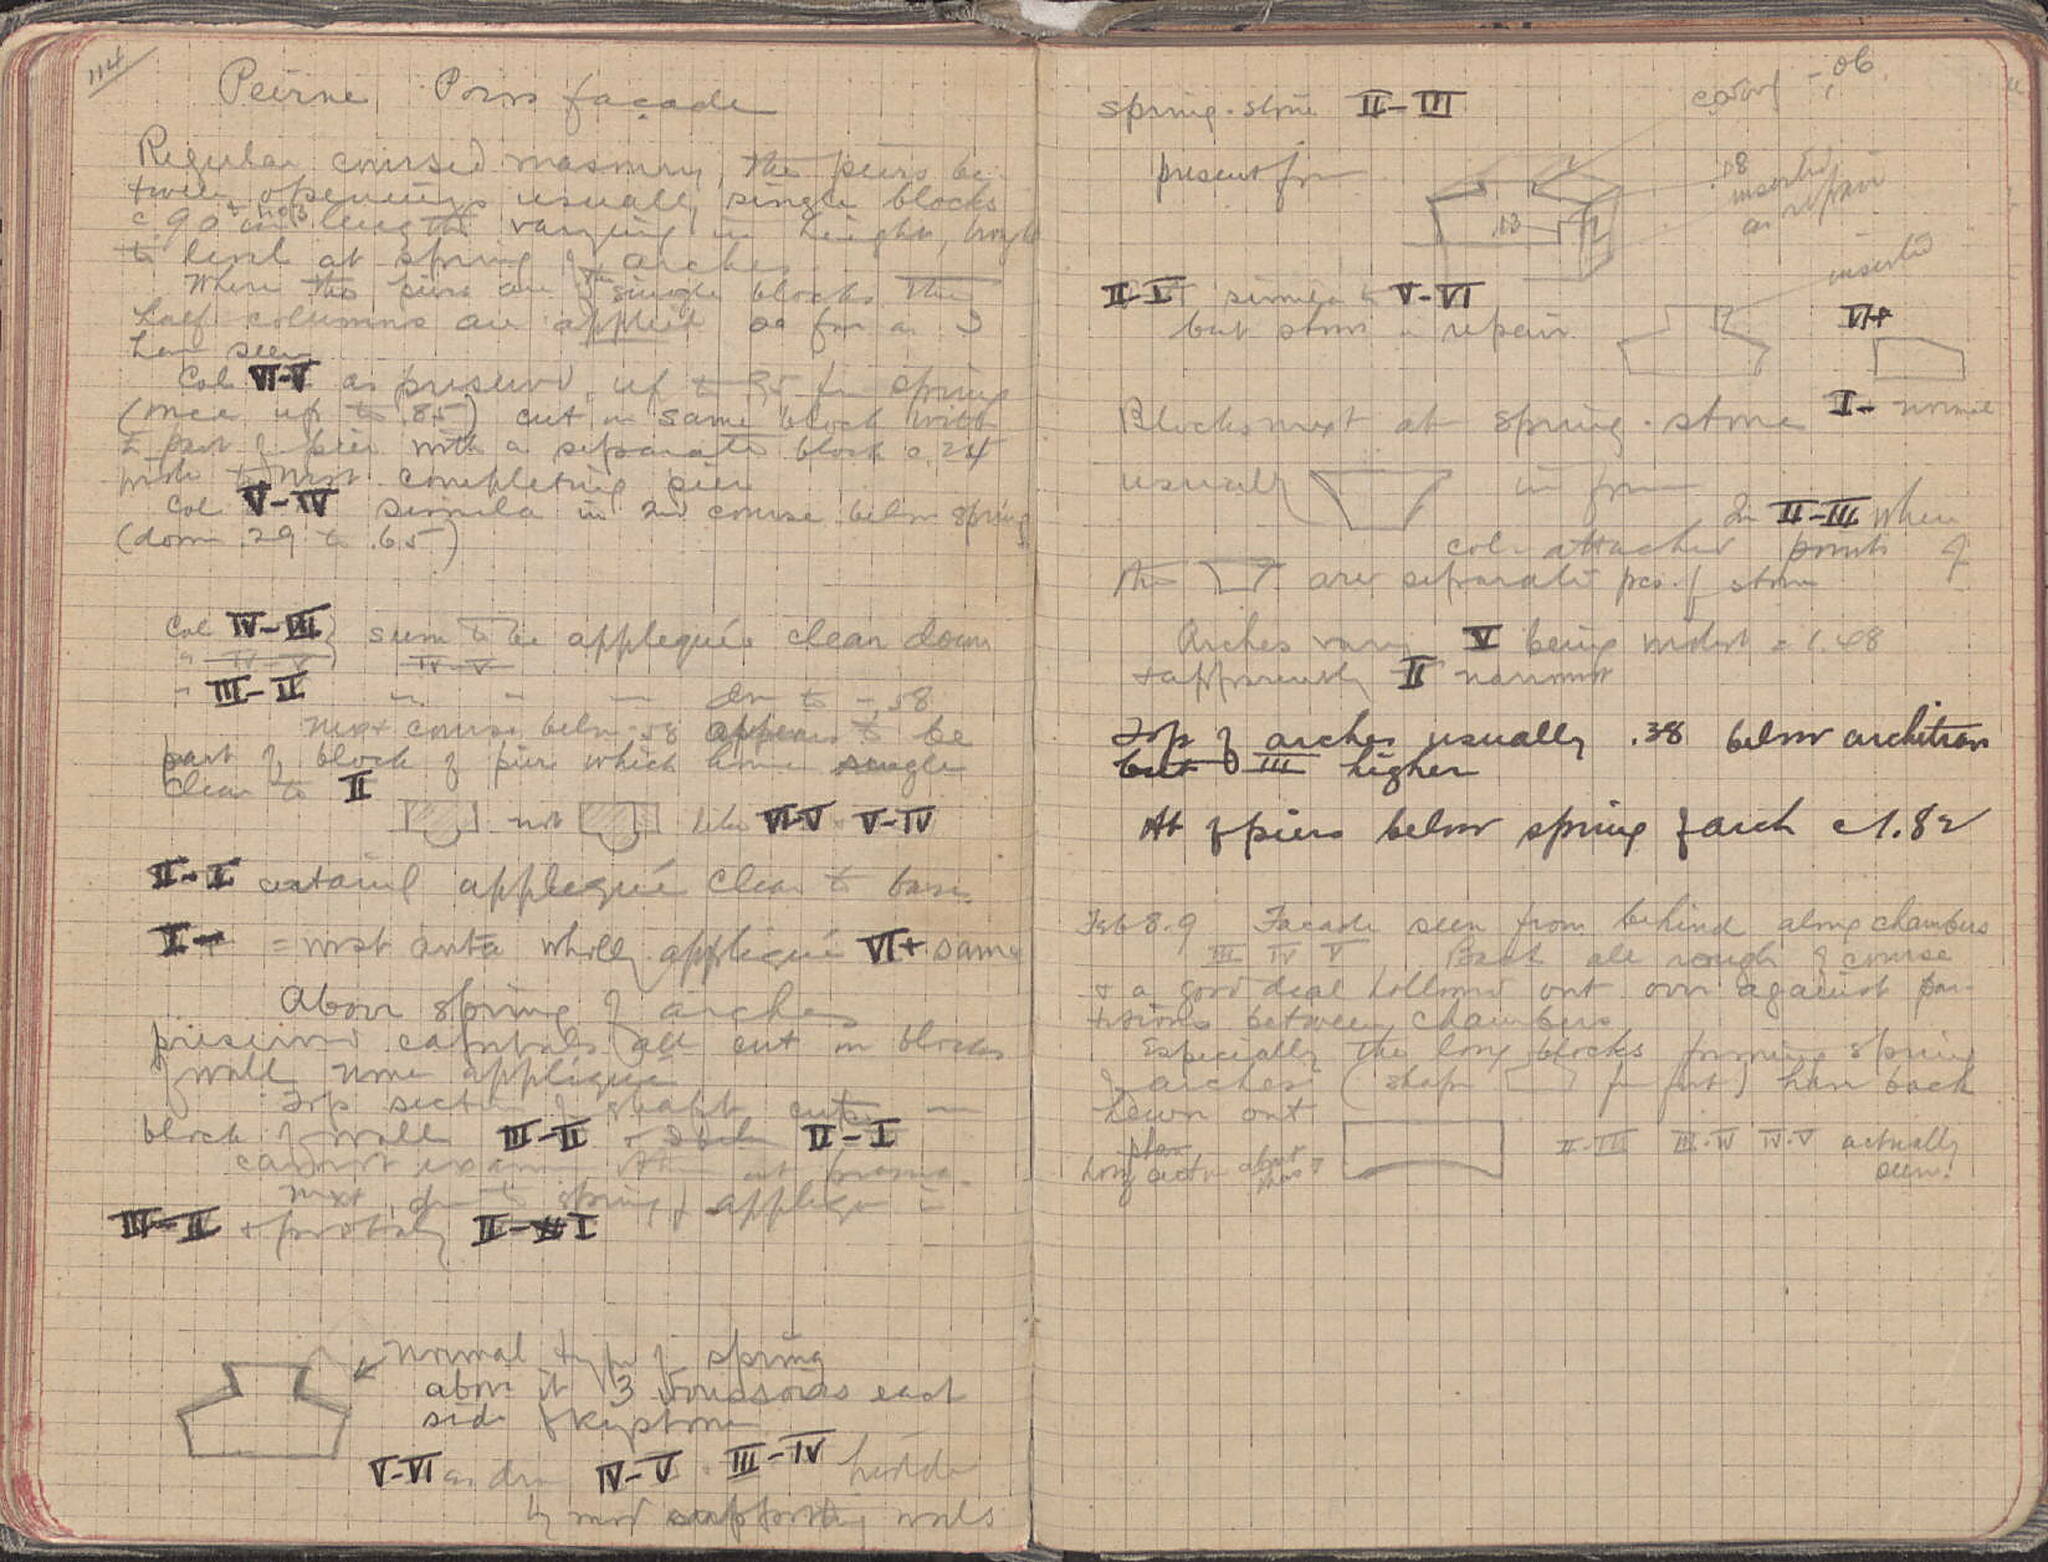 114
Peirene Poros façade
Regular coursed masonry, the piers be-
tween openings usually single blocks
c. 90 in length varying in height,
to level at spring of arches
Where the piers are single blocks the
half columns are applied as far as I
have seen
Col VI-V as preserved, up to .35 fr spring
(once up to .85) cut in same block with
part of pier with a separate block c. 24
wide to west completing pier
Col V-IV similar in 2nd course below spring
(down .29 to .65)
Col IV-III } seem to be appliqués clear down
" IV-V } IV-V
" III-II " " — dn to -.58
Next course below .58 appears to be
part of block of pier which have single
clear to II
not like VI-V V-IV
II-I certainly appliqué clear to base
I- = west anta wholly appliqué VI+ same
Above spring of arches
preserved capitals all cut in blocks
of wall none appliqué
Top section of shaft cut in
block of wall III-II II-I
cannot examine at
next spring appliqué in
III-II & probably II-I
Normal type of spring
above it 3 voussoirs each
side & keystone
V-VI as dr IV-V III-IV hidden
by mod supporting walls
spring-stone II-III
-.06
present form
.08
inserted
as repair
.13
inserted
II-I similar to V-VI
but stone in repair
VI+
I- normal
Blocks next at spring-stone
usually in form
In II-III where
col attached points of
the are separate pcs. of stone
Arches vary V being widest = 1.48
& apparently II narrowest
Top of arches usually .38 below architrave
but III higher
Ht of piers below spring of arch c 1.82
Feb 8.9 Facade seen from behind along chambers
III IV V Back all rough of course
& a good deal hollowed out over against par-
titions between chambers
Especially the long blocks forming spring
of arches (shape fr frt) have back
hewn out
plan
hor section about thus
II-III III-IV IV-V actually
seen.